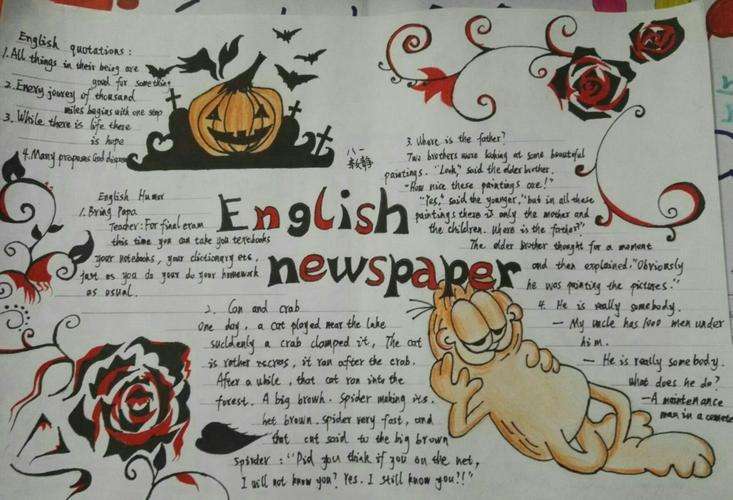 English quotations:
1. All things in their being are
good for something
2. Enery jourey of thousand
miles begins with one step
3. While there is life there
is hope
4. Many proposes God
八一
English newspaper
English Humor
1. Bring Papa
Teacher: For final exam
this time you can take you textbooks
your notebooks, your dictionary etc.
fast as you do your do your homework
as usual.
2. Can and crab
One day, a cat played near the lake
suddenly a crab clamped it, The cat
is rather, it ran after the crab.
After a while, that cat ran into the
forest. A big brown. spider making its.
het brown. spider very fast, and
that cat said to the big brown
spinder: "Did you think if you on the net,
I will not know you? Yes. I still know you!!"
3. Where is the father?
Two brothers were looking at some beautiful
paintings. "Look," said the elder brother.
"How nice these paintings are!"
"Yes," said the younger, "but in all these
paintings there is only the mother and
the children. Where is the father?"
The elder brother thought for a moment
and then explained. "Obviously
he was painting the pictures."
4. He is really somebody.
— My uncle has 1000 men under
him.
— He is really somebody.
what does he do?
— A maintenance
man in a